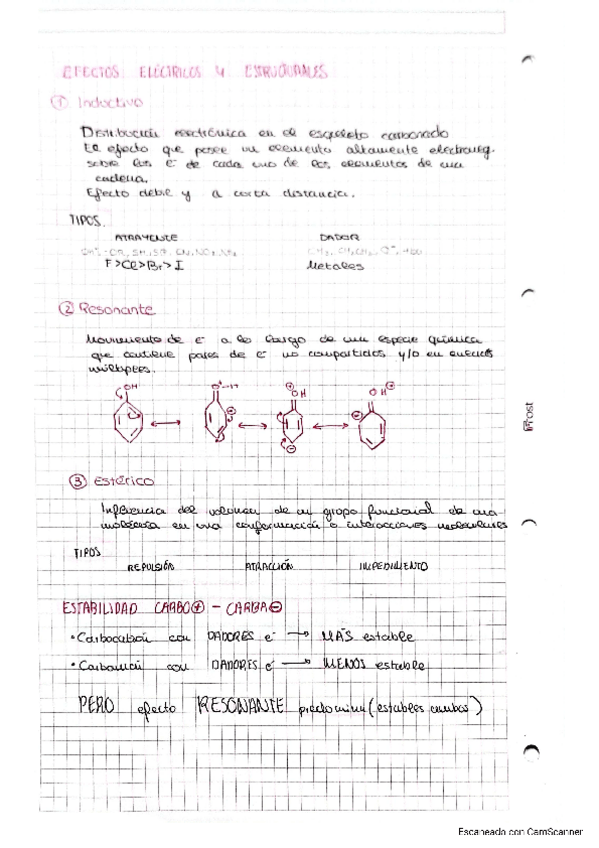 EFECTOS ELÉCTRICOS Y ESTRUCTURALES
① Inductivo
Distribución electrónica en el esqueleto carbonado
El efecto que posee un elemento altamente electroneg.
sobre los e⁻ de cada uno de los elementos de una
cadena.
Efecto débil y a corta distancia.
TIPOS.
ATRAYENTE DADOR
F>Cl>Br>I Metales
② Resonante
Movimiento de e⁻ a lo largo de una especie química
que contiene pares de e⁻ no compartidos y/o en enlaces
múltiples.
OH OH OH
③ Estérico
Influencia del volumen de un grupo funcional de una
molécula en una conformación o interacciones moleculares
TIPOS
REPULSIÓN ATRACCIÓN IMPEDIMENTO
ESTABILIDAD CARBO⊕ - CARBA⊖
• Carbocatión con DADORES e⁻ → MÁS estable
• Carbanión con DADORES e⁻ → MENOS estable
PERO efecto RESONANTE predomina (estables ambos)
Escaneado con CamScanner